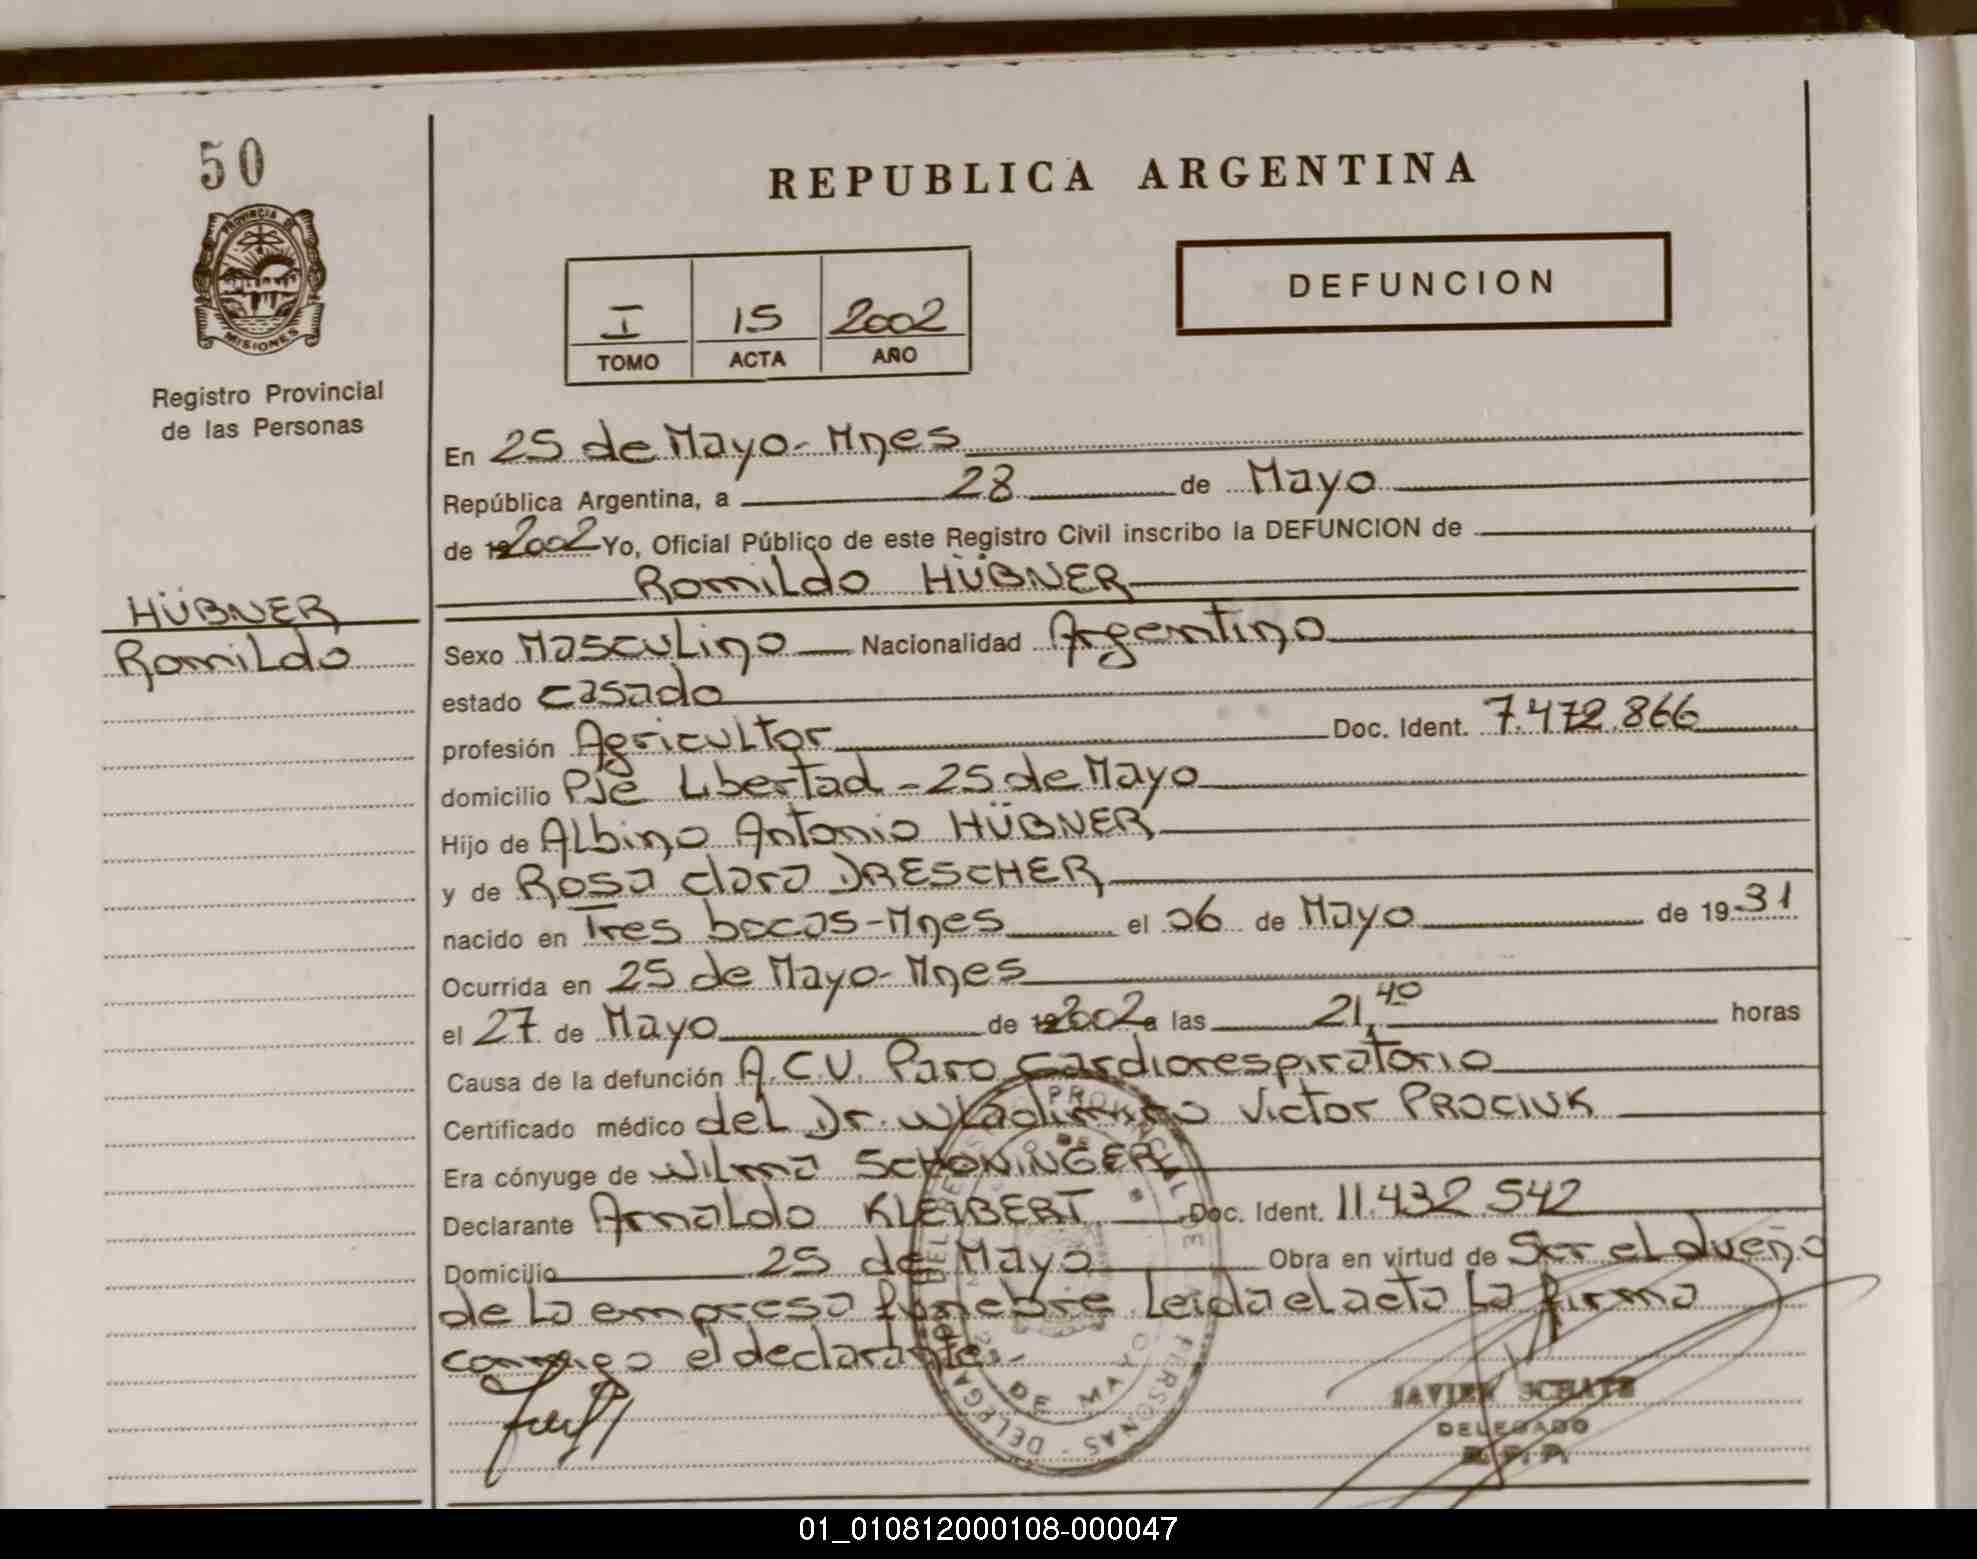 50
PROVINCIA DE
MISIONES
Registro Provincial
de las Personas
HÜBNER
Romildo
REPUBLICA ARGENTINA
I 15 2002
TOMO ACTA AÑO
DEFUNCION
En 25 de Mayo - Mnes
República Argentina, a 28 de Mayo
de 192002 Yo, Oficial Público de este Registro Civil inscribo la DEFUNCION de
Romildo HÜBNER
Sexo Masculino Nacionalidad Argentino
estado casado
profesión Agricultor Doc. Ident. 7.472.866
domicilio Pje Libertad - 25 de Mayo
Hijo de Albino Antonio HÜBNER
y de Rosa clara DRESCHER
nacido en Tres bocas - Mnes el 06 de Mayo de 1931
Ocurrida en 25 de Mayo - Mnes
el 27 de Mayo de 192002 a las 21,40 horas
Causa de la defunción A.C.V. Paro cardiorespiratorio
Certificado médico del Dr. Wladimiro Victor PROCIUK
Era cónyuge de Wilma SCHONINGER
Declarante Arnaldo KLEIBERT Doc. Ident. 11.432.542
Domicilio 25 de Mayo Obra en virtud de Ser el dueño
de la empresa fúnebre Leida el acta La firma
conmigo el declarante.-
JAVIER SCHATZ
DELEGADO
R. P. P.
DE MAYO
01_010812000108-000047